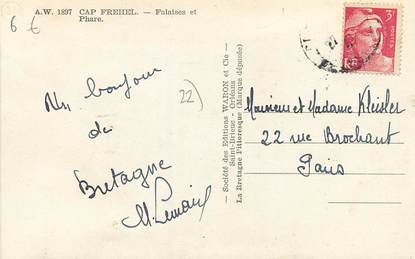 6 €
A.W. 1897 CAP FREHEL. — Falaises et
Phare.
Un bonjour
de
Bretagne
22)
— Société des Editions WARON et Cie —
Saint-Brieuc - Orléans
La Bretagne Pittoresque (Marque déposée)
3F
POSTES
Monsieur et Madame Kleisler
22 rue Brochant
Paris